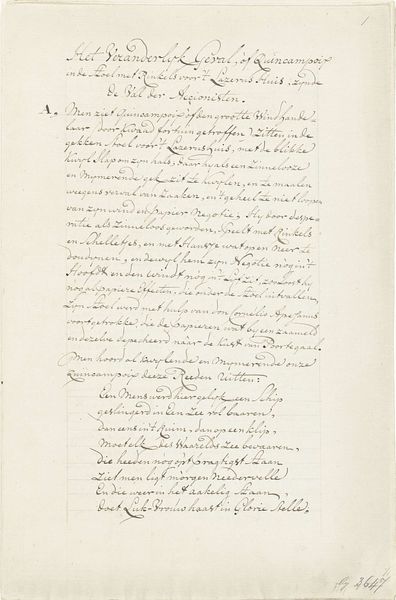 1
Het Veranderlyk Geval, of Quincampoix
in de Stoel met Rinkels voor 't Lazerus Huis, zynde
de Val der Actionisten.
A. Men ziet Quincampoix of den groote Windhande-
laar door kwaad fortuin getroffen Zitten in de
gekken Stoel voor 't Lazerushuis, met de blikke
kwyl Slap om zyn hals, daar hy als een Zinneloose
en Mymerende gek zit te kwylen, en te maalen
weegens verval van Zaaken, en 't geheel te niet loopen
van zyn wind en Papier Negotie; Hy door despe-
ratie als Zinneloos geworden, Speelt met Rinkels
en Schelletjes, en met Hansje wat op en neer te
, en dewyl hem zyn Negotie nog in 't
Hooft en den windt nog in 't Lyf Zit, zoo loost hy
nog al Papiere Effecten, die onder de Stoel uitvallen,
Zyn Stoel werd met hulp van don Cornelis
voortgetrokke, die de Papieren wat by een zaameld
en dezelve depecheerd naar de kust van Poortegaal.
Men hoord al kwylende en Mymerende onze
Quincampoix deeze Reeden Uitten:
Een Mens werd hier gelyk een Schip
geslingerd in Een Zee vol baaren,
dan eens in 't Ruim, dan op een klip,
Moet elk des Waerelds Zee bevaaren,
Die heeden nog op 't Pragtigst Staan
Ziet men ligt morgen Needervelle
En die weer in het aakelig Staan,
doet Luk-Vrouw haast in Glorie Stelle.
3647